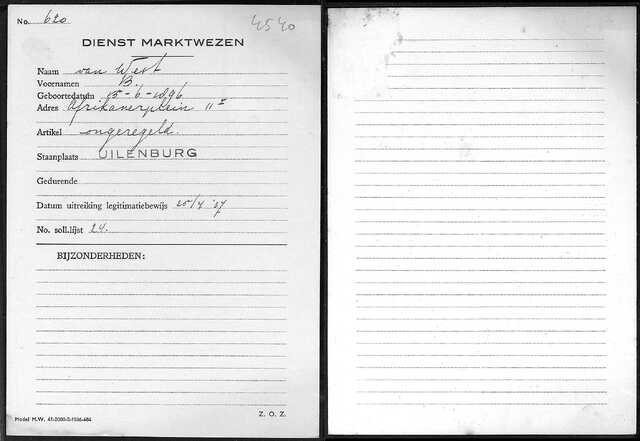 No. 620
4540
DIENST MARKTWEZEN
Naam van West
Voornamen B.
Geboortedatum 15-6-1896
Adres Afrikanerplein 11 I
Artikel ongeregeld.
Staanplaats UILENBURG
Gedurende
Datum uitreiking legitimatiebewijs 20/4 '37
No. soll.lijst 24.
BIJZONDERHEDEN:
Model M.W. 41-2000-2-1936-484
Z. O. Z.